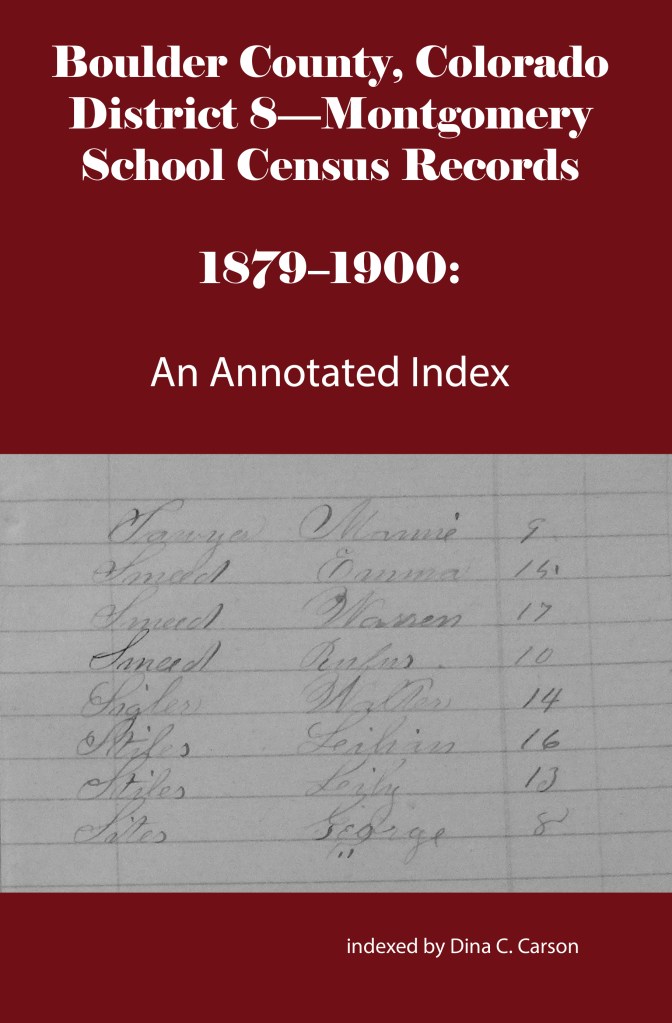 Boulder County, Colorado
District 8—Montgomery
School Census Records
1879–1900:
An Annotated Index
Mamie 9
Smeed Emma
Smeed Warren 17
Smeed Rufus 10
Sigler Walter 14
Stiles 16
Stiles Lily 13
Sites George 8
"
indexed by Dina C. Carson